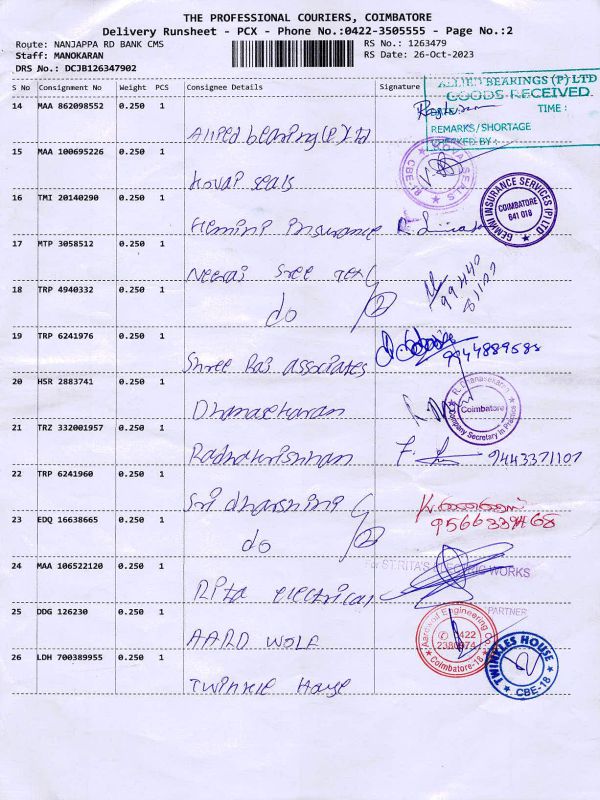 THE PROFESSIONAL COURIERS, COIMBATORE
Delivery Runsheet - PCX - Phone No.:0422-3505555 - Page No.:2
Route: NANJAPPA RD BANK CMS
RS No.: 1263479
Staff: MANOKARAN
RS Date: 26-Oct-2023
DRS No.: DCJB126347902
S No Consignment No Weight PCS Consignee Details Signature
ALLIED BEARINGS (P) LTD
GOODS RECEIVED.
TIME :
REMARKS/SHORTAGE
CHECKED BY :
14 MAA 862098552 0.250 1
Allied bearing (P) Ltd
15 MAA 100695226 0.250 1
Kovai seals
KOVAI SEALS CBE-18
16 TMI 20140290 0.250 1
Gemini Insurance
GEMINI INSURANCE SERVICES (P) LTD
COIMBATORE
641 018
17 MTP 3058512 0.250 1
Neerai Sree tex
18 TRP 4940332 0.250 1
do 2
19 TRP 6241976 0.250 1
Shree Raj associates
9944889588
20 HSR 2883741 0.250 1
Dhanasekaran
R. Dhanasekaran
Coimbatore
Company Secretary In Practice
21 TRZ 332001957 0.250 1
Radhakrishnan 9443371107
22 TRP 6241960 0.250 1
Sri dharshini
23 EDQ 16638665 0.250 1
do 2
24 MAA 106522120 0.250 1
Rita electrical
For ST.RITA'S ELECTRIC WORKS
PARTNER
25 DDG 126230 0.250 1
AARD WOLF
Aardwolf Engineering Co
0422
2380974
Coimbatore-18
26 LDH 700389955 0.250 1
Twinkle House
TWINKLES HOUSE
CBE-18